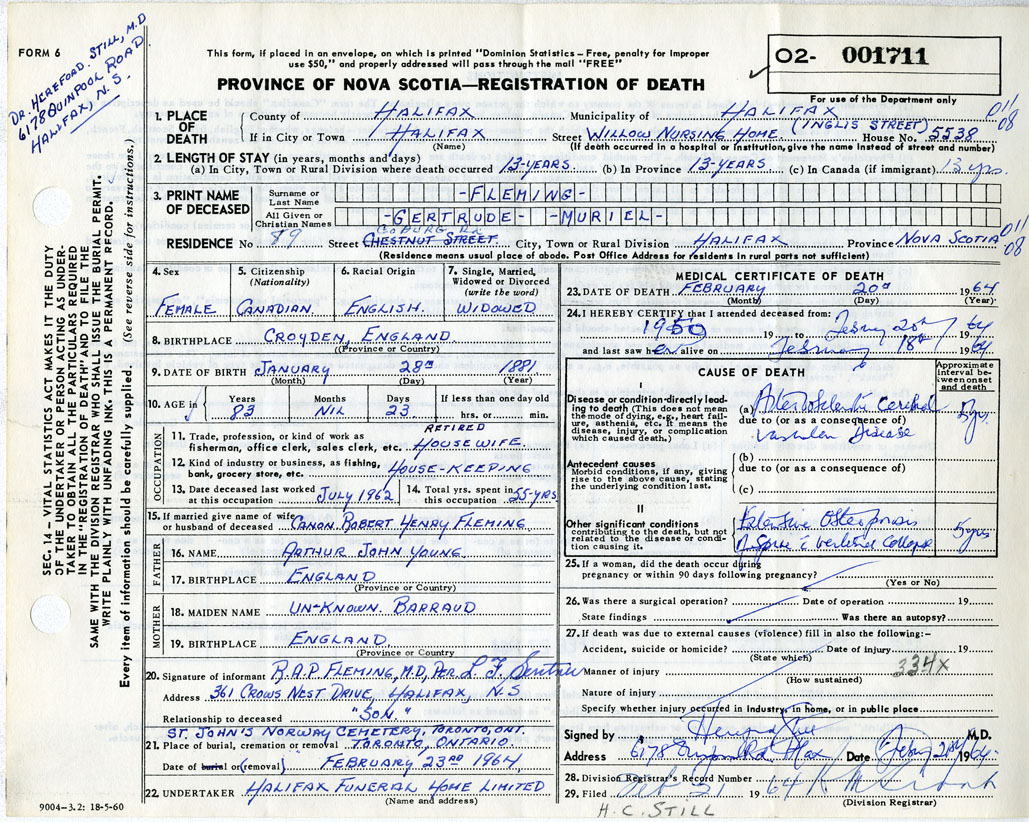 FORM 6
DR. HEREFORD. STILL, M.D
6178 QUINPOOL ROAD
HALIFAX, N.S.
This form, if placed in an envelope, on which is printed "Dominion Statistics – Free, penalty for improper
use $50," and properly addressed will pass through the mail "FREE"
PROVINCE OF NOVA SCOTIA—REGISTRATION OF DEATH
O2- 001711
For use of the Department only
011
08
1. PLACE OF DEATH
County of HALIFAX Municipality of HALIFAX
If in City or Town HALIFAX (Name) Street WILLOW NURSING HOME. (INGLIS STREET) House No. 5538
(If death occurred in a hospital or institution, give the name instead of street and number)
2. LENGTH OF STAY (in years, months and days)
(a) In City, Town or Rural Division where death occurred 13-YEARS. (b) In Province 13-YEARS (c) In Canada (if immigrant) 13 yrs.
3. PRINT NAME OF DECEASED
Surname or Last Name -FLEMING-
All Given or Christian Names -GERTRUDE- -MURIEL-
COBURG RD
RESIDENCE No 89 Street CHESTNUT STREET City, Town or Rural Division HALIFAX Province NOVA SCOTIA
011
08
(Residence means usual place of abode. Post Office Address for residents in rural parts not sufficient)
4. Sex FEMALE
5. Citizenship (Nationality) CANADIAN.
6. Racial Origin ENGLISH.
7. Single, Married, Widowed or Divorced (write the word) WIDOWED
8. BIRTHPLACE CROYDEN, ENGLAND (Province or Country)
9. DATE OF BIRTH JANUARY (Month) 28TH (Day) 1881 (Year)
10. AGE in Years 83 Months NIL Days 23 If less than one day old hrs. or min.
OCCUPATION
RETIRED
11. Trade, profession, or kind of work as fisherman, office clerk, sales clerk, etc. HOUSEWIFE.
12. Kind of industry or business, as fishing, bank, grocery store, etc. HOUSE-KEEPING
13. Date deceased last worked at this occupation JULY 1962 14. Total yrs. spent in this occupation 55-YRS
15. If married give name of wife or husband of deceased CANON. ROBERT HENRY FLEMING
FATHER
16. NAME ARTHUR JOHN YOUNG
17. BIRTHPLACE ENGLAND (Province or Country)
MOTHER
18. MAIDEN NAME UN-KNOWN. BARRAUD
19. BIRTHPLACE ENGLAND (Province or Country)
20. Signature of informant R.A.P. FLEMING, M.D, PER L F
Address 361 CROWS NEST DRIVE, HALIFAX, N.S
Relationship to deceased "SON."
ST. JOHN'S NORWAY CEMETERY, TORONTO, ONT.
21. Place of burial, cremation or removal TORONTO, ONTARIO.
Date of burial or (removal) FEBRUARY 23RD 1964
22. UNDERTAKER HALIFAX FUNERAL HOME LIMITED
(Name and address)
MEDICAL CERTIFICATE OF DEATH
23. DATE OF DEATH FEBRUARY (Month) 20TH (Day) 1964 (Year)
24. I HEREBY CERTIFY that I attended deceased from:
1950 19 to 20th 1964
and last saw her alive on February 18th 1964
CAUSE OF DEATH
Approximate interval between onset and death
I
Disease or condition directly leading to death (This does not mean the mode of dying, e.g., heart failure, asthenia, etc. It means the disease, injury, or complication which caused death.)
(a) Arteriosclerotic cerebral 5 yrs.
due to (or as a consequence of)
vascular disease
Antecedent causes
Morbid conditions, if any, giving rise to the above cause, stating the underlying condition last.
(b)
due to (or as a consequence of)
(c)
II
Other significant conditions contributing to the death, but not related to the disease or condition causing it.
Extensive Osteoporosis
of Spine c̄ vertebral collapse
5 yrs
25. If a woman, did the death occur during pregnancy or within 90 days following pregnancy?
(Yes or No)
26. Was there a surgical operation? Date of operation 19
State findings Was there an autopsy?
27. If death was due to external causes (violence) fill in also the following:–
Accident, suicide or homicide? Date of injury 19
(State which)
334X
Manner of injury
(How sustained)
Nature of injury
Specify whether injury occurred in industry, in home, or in public place
Signed by Hereford Still M.D.
Address 6178 Quinpool Rd Hfax Date 1964
28. Division Registrar's Record Number
29. Filed Feb 21 1964
(Division Registrar)
H.C. STILL
SEC. 14 – VITAL STATISTICS ACT MAKES IT THE DUTY
OF THE UNDERTAKER OR PERSON ACTING AS UNDER-
TAKER TO OBTAIN ALL THE PARTICULARS REQUIRED
IN THE "REGISTRATION OF DEATH" AND TO FILE THE
SAME WITH THE DIVISION REGISTRAR WHO SHALL ISSUE THE BURIAL PERMIT.
WRITE PLAINLY WITH UNFADING INK. THIS IS A PERMANENT RECORD.
Every item of information should be carefully supplied. (See reverse side for instructions.)
9004–3.2: 18-5-60